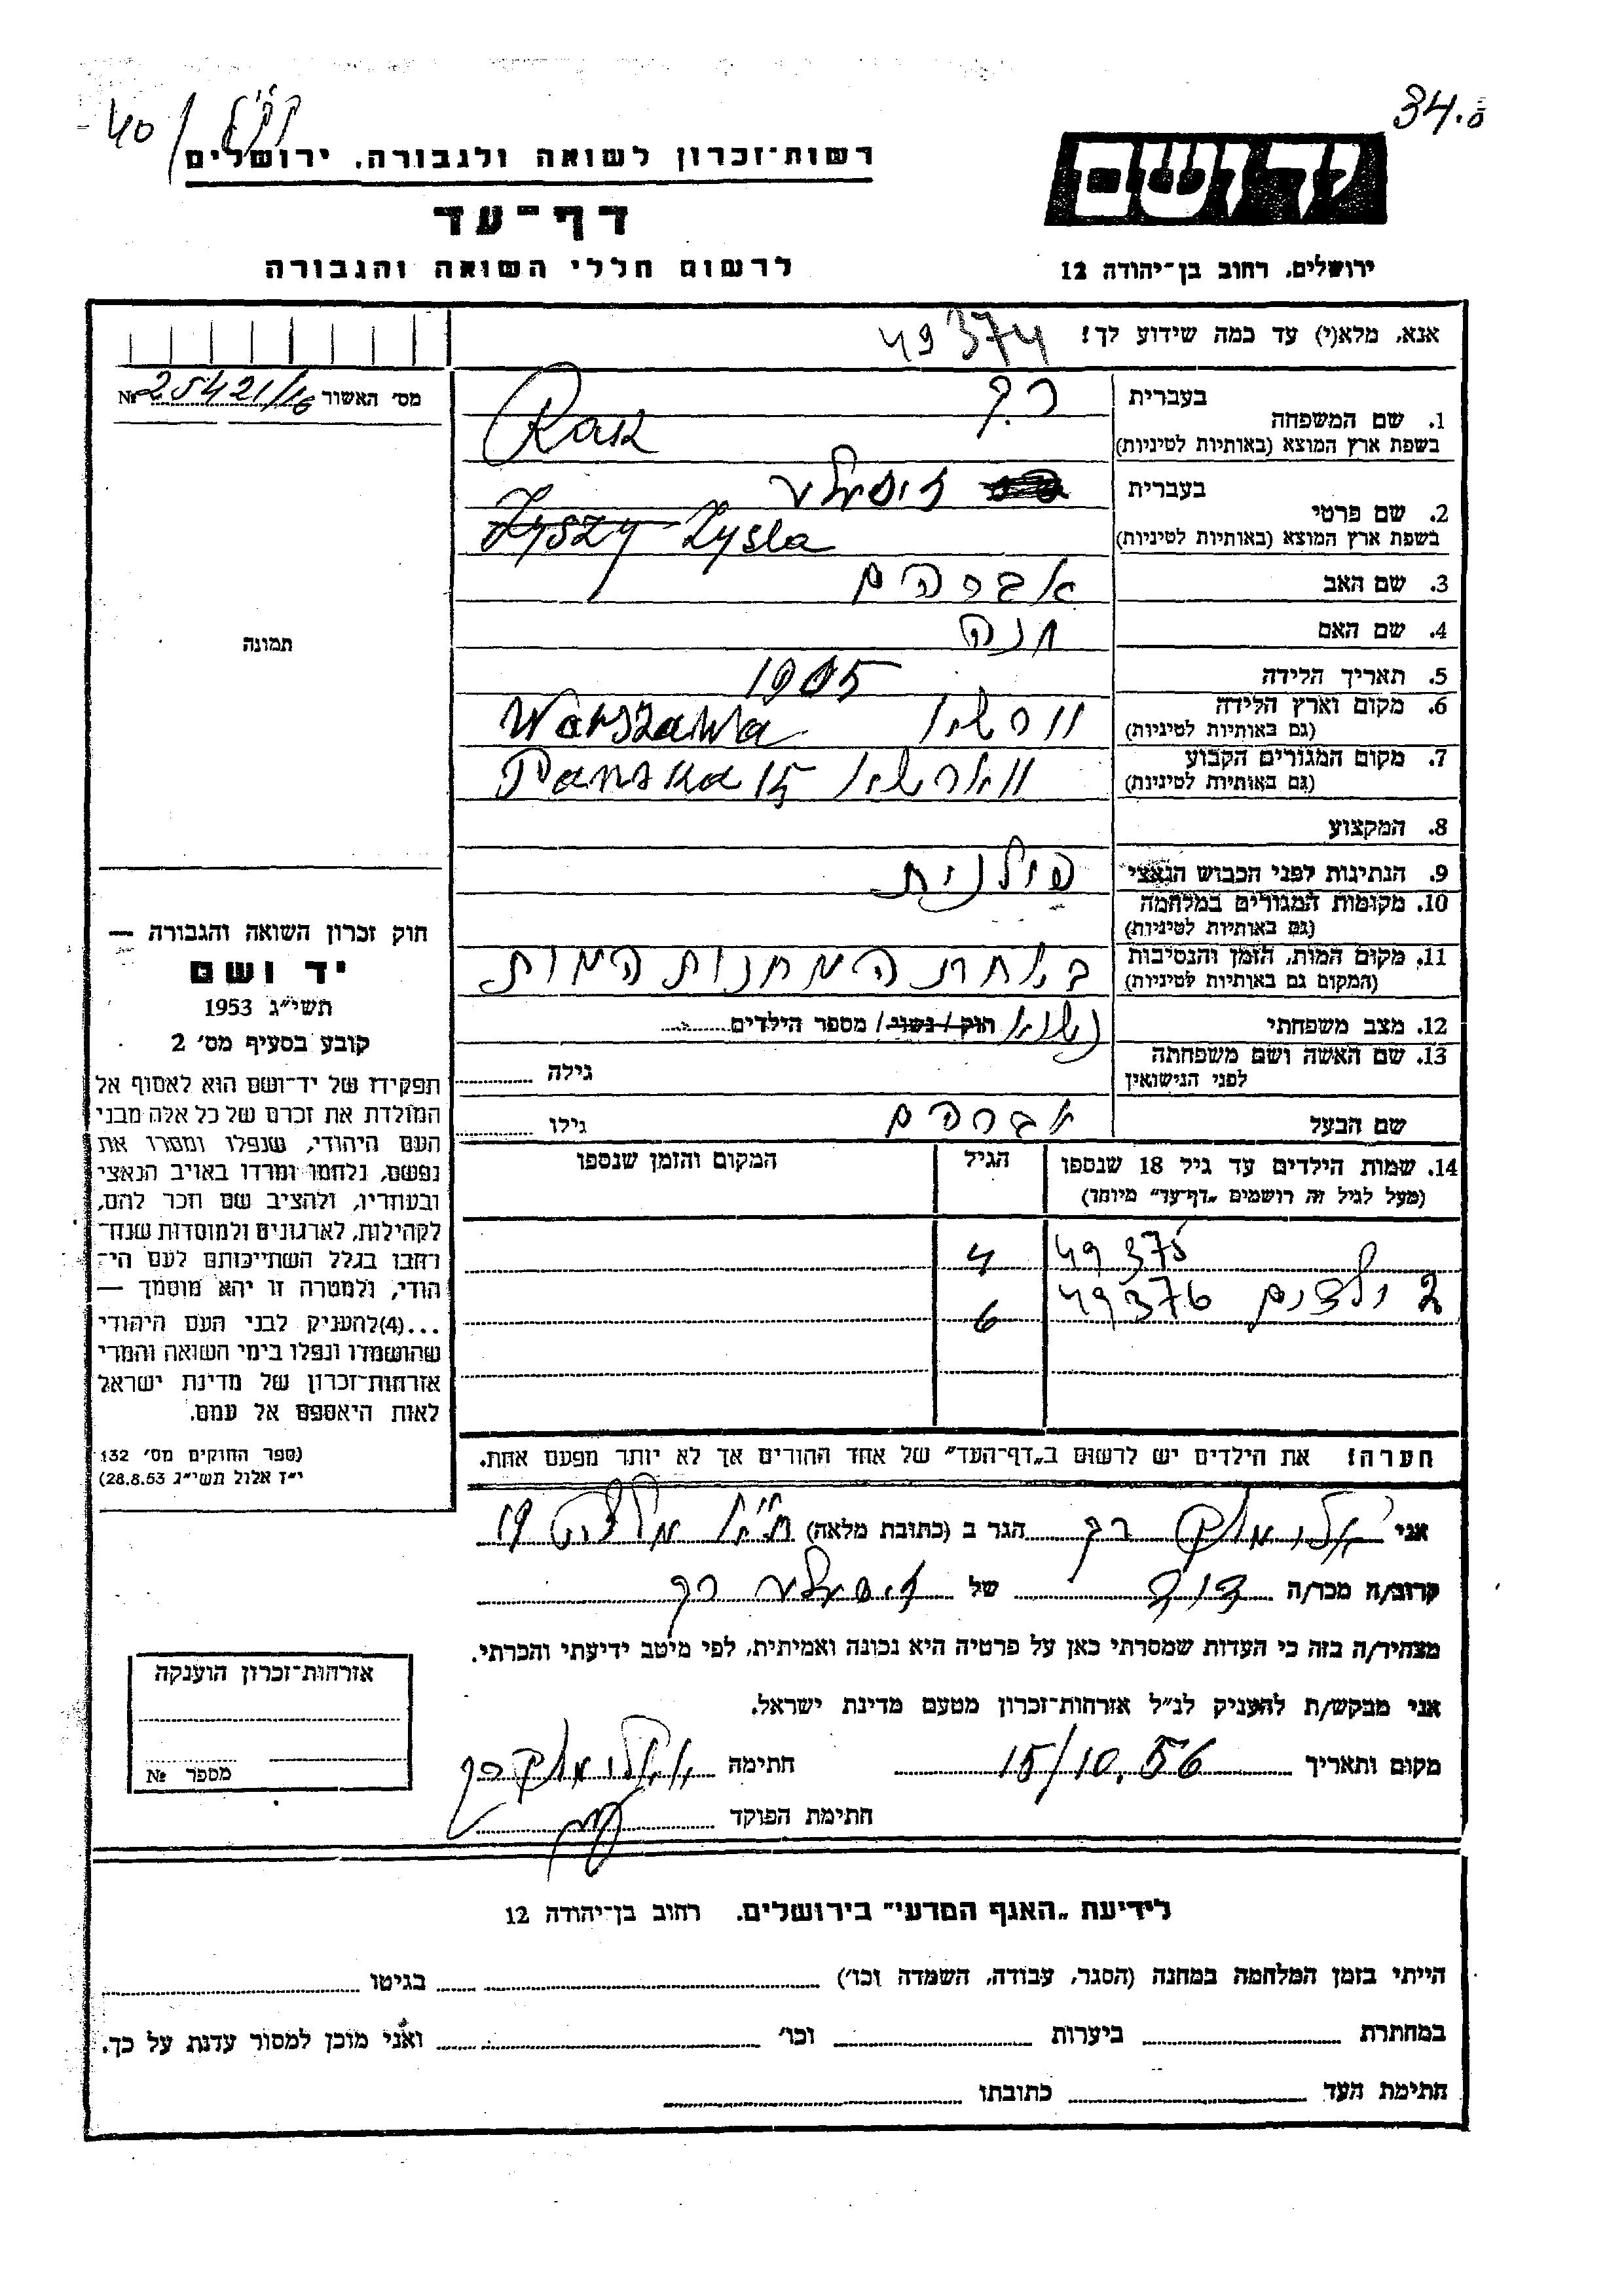 34.
40 /
יד ושם
רשות־זכרון לשואה ולגבורה, ירושלים
דף־עד
ירושלים, רחוב בן־יהודה 12
לרשום חללי השואה והגבורה
אנא, מלא(י) עד כמה שידוע לך! 49374
מס׳ האשור № 25421/16
תמונה
1. שם המשפחה
בעברית רק
בשפת ארץ המוצא (באותיות לטיניות) Rak
2. שם פרטי
בעברית זיסלע
בשפת ארץ המוצא (באותיות לטיניות) Zyszy Zysla
3. שם האב אברהם
4. שם האם חנה
5. תאריך הלידה 1905
6. מקום וארץ הלידה
(גם באותיות לטיניות) ורשא Warszawa
7. מקום המגורים הקבוע
(גם באותיות לטיניות) ווארשא Panska 15
8. המקצוע
9. הנתינות לפני הכבוש הנאצי פולנית
10. מקומות המגורים במלחמה
(גם באותיות לטיניות)
11. מקום המות, הזמן והנסיבות
(המקום גם באותיות לטיניות) באחת המחנות המות
12. מצב משפחתי נשוא רווק / נשוי / מספר הילדים
13. שם האשה ושם משפחתה
לפני הנישואין
גילה
שם הבעל אברהם גילו
14. שמות הילדים עד גיל 18 שנספו
(מעל לגיל זה רושמים „דף־עד״ מיוחד)
הגיל
המקום והזמן שנספו
49375 4
2 ילדים 49376 6
הערה! את הילדים יש לרשום ב„דף־העד״ של אחד ההורים אך לא יותר מפעם אחת.
חוק זכרון השואה והגבורה —
יד ושם
תשי״ג 1953
קובע בסעיף מס׳ 2
תפקידו של יד־ושם הוא לאסוף אל
המולדת את זכרם של כל אלה מבני
העם היהודי, שנפלו ומסרו את
נפשם, נלחמו ומרדו באויב הנאצי
ובעוזריו, ולהציב שם וזכר להם,
לקהילות, לארגונים ולמוסדות שנח־
רבו בגלל השתייכותם לעם הי־
הודי, ולמטרה זו יהא מוסמך —
...(4)להעניק לבני העם היהודי
שהושמדו ונפלו בימי השואה והמרי
אזרחות־זכרון של מדינת ישראל
לאות היאספם אל עמם.
(ספר החוקים מס׳ 132
י״ז אלול תשי״ג 28.8.53)
אני רק הגר ב (כתובת מלאה) 19
קרוב/ה מכר/ה דוד של זיסלע רק
מצהיר/ה בזה כי העדות שמסרתי כאן על פרטיה היא נכונה ואמיתית, לפי מיטב ידיעתי והכרתי.
אני מבקש/ת להעניק לנ״ל אזרחות־זכרון מטעם מדינת ישראל.
מקום ותאריך 15/10.56 חתימה
חתימת הפוקד
אזרחות־זכרון הוענקה
מספר №
לידיעת „האגף המדעי״ בירושלים. רחוב בן־יהודה 12
הייתי בזמן המלחמה במחנה (הסגר, עבודה, השמדה וכו׳) בגיטו
במחתרת ביערות וכו׳ ואני מוכן למסור עדות על כך.
חתימת העד כתובתו